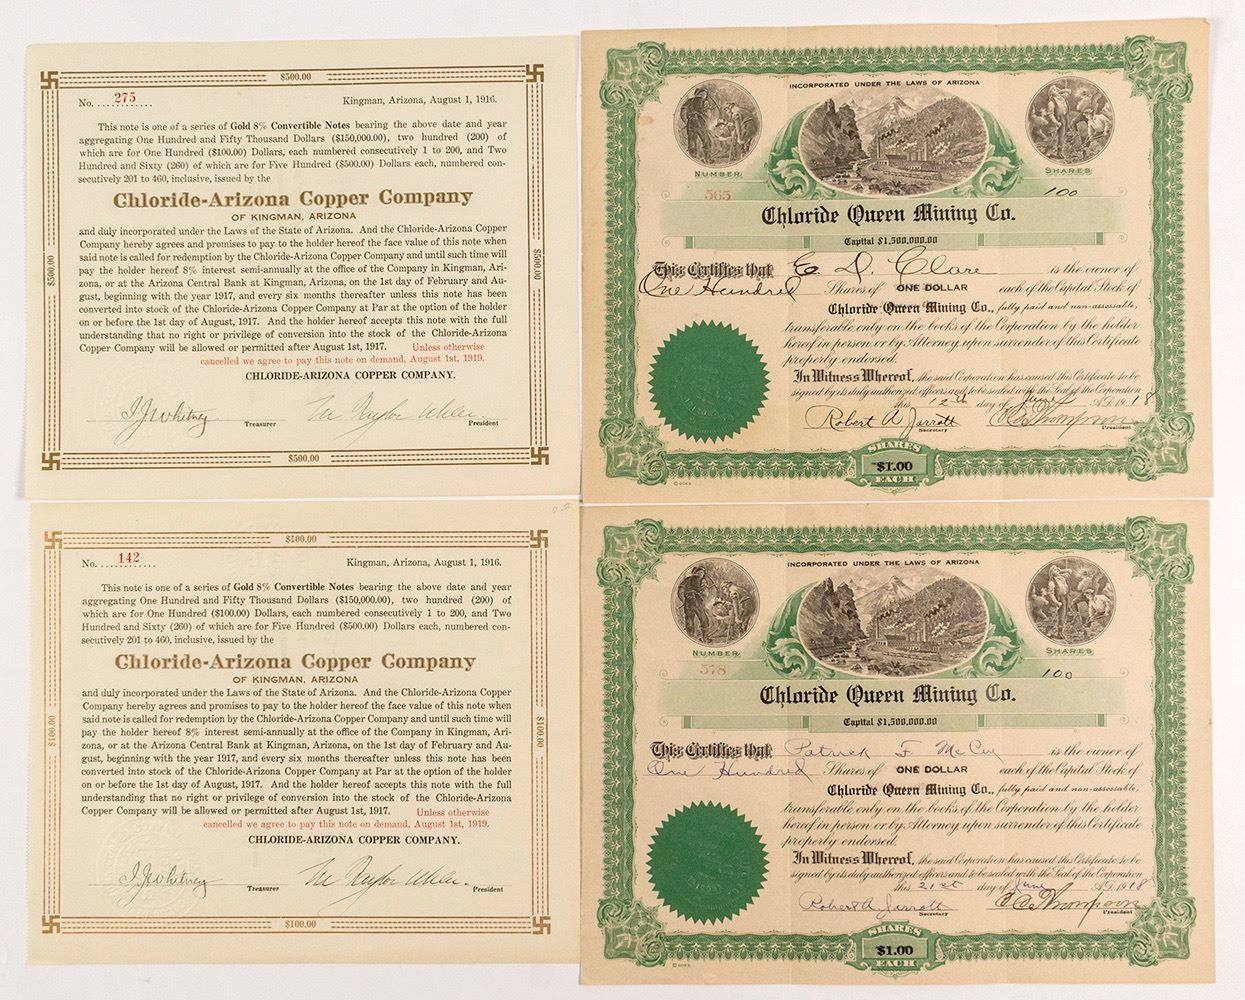 $500.00
No. 275 Kingman, Arizona, August 1, 1916.
This note is one of a series of Gold 8% Convertible Notes bearing the above date and year
aggregating One Hundred and Fifty Thousand Dollars ($150,000.00), two hundred (200) of
which are for One Hundred ($100.00) Dollars, each numbered consecutively 1 to 200, and Two
Hundred and Sixty (260) of which are for Five Hundred ($500.00) Dollars each, numbered con-
secutively 201 to 460, inclusive, issued by the
Chloride-Arizona Copper Company
OF KINGMAN, ARIZONA
and duly incorporated under the Laws of the State of Arizona. And the Chloride-Arizona Copper
Company hereby agrees and promises to pay to the holder hereof the face value of this note when
said note is called for redemption by the Chloride-Arizona Copper Company and until such time will
pay the holder hereof 8% interest semi-annually at the office of the Company in Kingman, Ari-
zona, or at the Arizona Central Bank at Kingman, Arizona, on the 1st day of February and Au-
gust, beginning with the year 1917, and every six months thereafter unless this note has been
converted into stock of the Chloride-Arizona Copper Company at Par at the option of the holder
on or before the 1st day of August, 1917. And the holder hereof accepts this note with the full
understanding that no right or privilege of conversion into the stock of the Chloride-Arizona
Copper Company will be allowed or permitted after August 1st, 1917. Unless otherwise
cancelled we agree to pay this note on demand, August 1st, 1919.
CHLORIDE-ARIZONA COPPER COMPANY.
J. J. Whitney Treasurer
President
$500.00
$500.00
$500.00
INCORPORATED UNDER THE LAWS OF ARIZONA
NUMBER SHARES
565 100
Chloride Queen Mining Co.
Capital $1,500,000.00
This Certifies that E D. Clare is the owner of
One Hundred Shares of ONE DOLLAR each of the Capital Stock of
Chloride Queen Mining Co., fully paid and non-assessable,
transferable only on the books of the Corporation by the holder
hereof in person or by Attorney upon surrender of this Certificate
properly endorsed.
In Witness Whereof, the said Corporation has caused this Certificate to be
signed by its duly authorized officers and to be sealed with the Seal of the Corporation
this 12th day of June A.D. 1918
Robert A Jarrott Thompson
Secretary President
SHARES
$1.00
EACH
© GOES
$100.00
No. 142 Kingman, Arizona, August 1, 1916.
This note is one of a series of Gold 8% Convertible Notes bearing the above date and year
aggregating One Hundred and Fifty Thousand Dollars ($150,000.00), two hundred (200) of
which are for One Hundred ($100.00) Dollars, each numbered consecutively 1 to 200, and Two
Hundred and Sixty (260) of which are for Five Hundred ($500.00) Dollars each, numbered con-
secutively 201 to 460, inclusive, issued by the
Chloride-Arizona Copper Company
OF KINGMAN, ARIZONA
and duly incorporated under the Laws of the State of Arizona. And the Chloride-Arizona Copper
Company hereby agrees and promises to pay to the holder hereof the face value of this note when
said note is called for redemption by the Chloride-Arizona Copper Company and until such time will
pay the holder hereof 8% interest semi-annually at the office of the Company in Kingman, Ari-
zona, or at the Arizona Central Bank at Kingman, Arizona, on the 1st day of February and Au-
gust, beginning with the year 1917, and every six months thereafter unless this note has been
converted into stock of the Chloride-Arizona Copper Company at Par at the option of the holder
on or before the 1st day of August, 1917. And the holder hereof accepts this note with the full
understanding that no right or privilege of conversion into the stock of the Chloride-Arizona
Copper Company will be allowed or permitted after August 1st, 1917. Unless otherwise
cancelled we agree to pay this note on demand, August 1st, 1919.
CHLORIDE-ARIZONA COPPER COMPANY.
J. J. Whitney Treasurer
President
$100.00
$100.00
$100.00
INCORPORATED UNDER THE LAWS OF ARIZONA
NUMBER SHARES
578 100
Chloride Queen Mining Co.
Capital $1,500,000.00
This Certifies that Patrick F. McCue is the owner of
One Hundred Shares of ONE DOLLAR each of the Capital Stock of
Chloride Queen Mining Co., fully paid and non-assessable,
transferable only on the books of the Corporation by the holder
hereof in person or by Attorney upon surrender of this Certificate
properly endorsed.
In Witness Whereof, the said Corporation has caused this Certificate to be
signed by its duly authorized officers and to be sealed with the Seal of the Corporation
this 21st day of June A.D. 1918
Robert A. Jarrott Thompson
Secretary President
SHARES
$1.00
EACH
© GOES